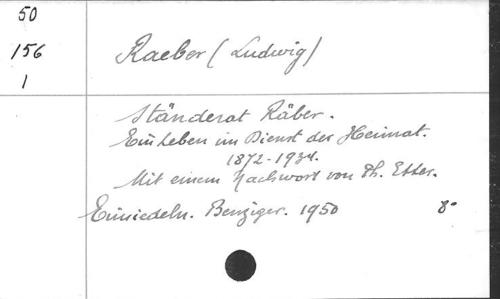 50
156
1
Raeber (Ludwig)
Ständerat Räber.
Ein Leben im Dienst der Heimat.
1872-1934.
Mit einem Nachwort von Ph. Etter.
Einsiedeln. Benziger. 1950 8°